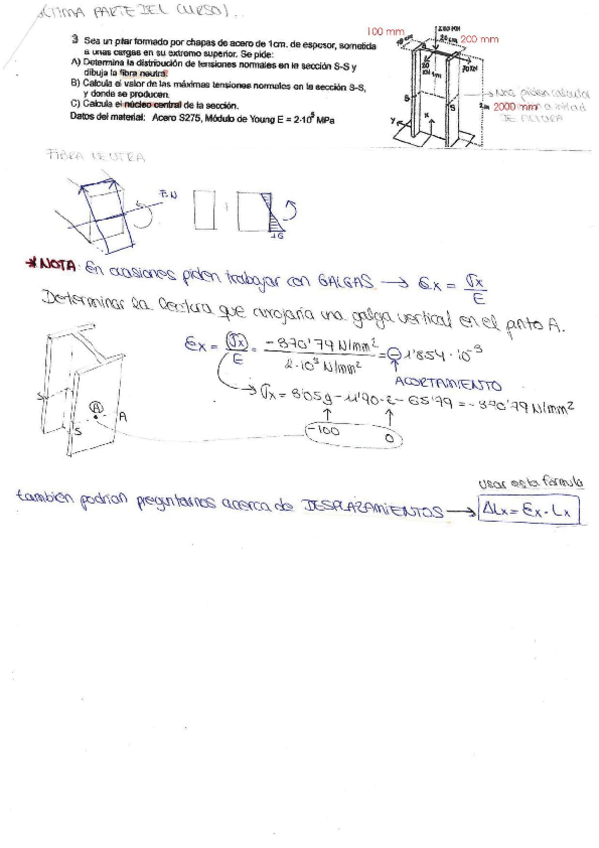 PARTE DEL CURSO)...
100 mm
200 mm
3 Sea un pilar formado por chapas de acero de 1cm. de espesor, sometida
a unas cargas en su extremo superior. Se pide:
A) Determina la distribución de tensiones normales en la sección S-S y
dibuja la fibra neutra.
B) Calcula el valor de las máximas tensiones normales en la sección S-S,
y donde se producen.
C) Calcula el núcleo central de la sección.
Datos del material: Acero S275, Módulo de Young E = 2·10⁵ MPa
S
S
Y
X
2000 mm
Nos piden calcular
a mitad
DE ALTURA
FIBRA NEUTRA
F.N
* NOTA: En ocasiones piden trabajar con GALGAS → εx = σx / E
Determinar la lectura que arrojaría una galga vertical en el pnto A.
εx = σx / E = -370'79 N/mm² / 2·10⁵ N/mm² = - 1'854·10⁻³
ACORTAMIENTO
σx = 3'05y - 11'90·z - 65'79 = -370'79 N/mm²
-100
0
S
S
A
A
también podrían preguntarnos acerca de DESPLAZAMIENTOS →
usar esta fórmula
ΔLx = εx · Lx